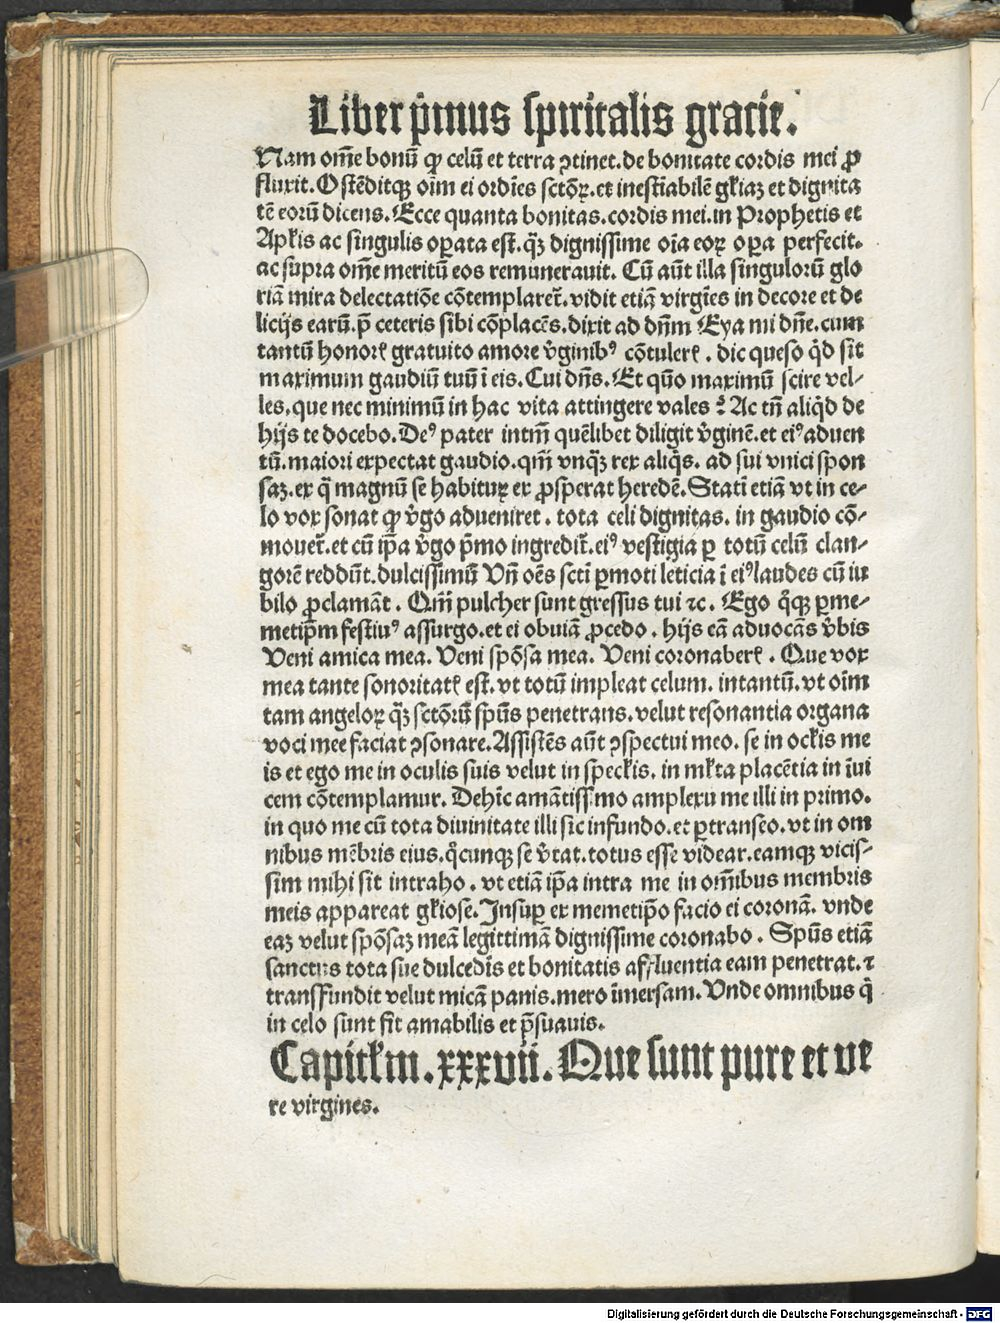 Liber p̄imus spiritalis gracie.
Nam om̄e bonū qꝫ celū et terra ꝯtinet. de bonitate cordis mei ꝓ
fluxit. Ostēditqꝫ oīm ei ordīes sctōꝝ. et inestīabilē gl̄iaꝫ et dignita
tē eorū dicens. Ecce quanta bonitas. cordis mei. in Prophetis et
Apl̄is ac singulis oꝑata est. qꝫ dignissime oīa eoꝝ oꝑa perfecit.
ac supra om̄e meritū eos remunerauit. Cū aūt illa singulorū glo
riā mira delectatiōe cōtemplaret̄. vidit etiā virgīes in decore et de
licijs earū. p̄ ceteris sibi cōplacēs. dixit ad dn̄m Eya mi dn̄e. cum
tantū honorē gratuito amore v̄ginibꝰ cōtulerꝭ. dic queso qͥd sit
maximum gaudiū tuū ī eis. Cui dn̄s. Et quō maximū scire vel-
les. que nec minimū in hac vita attingere vales ? Ac tn̄ aliqͥd de
hijs te docebo. Deꝰ pater intm̄ quēlibet diligit v̄ginē. et eiꝰ aduen
tū. maiori expectat gaudio. qm̄ vnqꝫ rex aliqͥs. ad sui vnici spon
saꝫ. ex q̄ magnū se habituꝝ ex ꝓsperat heredē. Statī etiā vt in ce-
lo vox sonat qꝫ v̄go adueniret. tota celi dignitas. in gaudio cō-
mouet̄. et cū ip̄a v̄go p̄mo ingredit̄. eiꝰ vestigia ꝑ totū celū clan-
gorē reddūt. dulcissimū Vn̄ oēs sctī ꝑmoti leticia ī eiꝰ laudes cū iu
bilo ꝓclamāt. Qm̄ pulcher sunt gressus tui ⁊c. Ego qͥqꝫ ꝑme-
metip̄m festiuꝰ assurgo. et ei obuiā ꝓcedo. hijs eā aduocās v̄bis
Veni amica mea. Veni spōsa mea. Veni coronaberꝭ. Que vox
mea tante sonoritatꝭ est. vt totū impleat celum. intantū. vt oīm
tam angeloꝝ qꝫ sctōrū spūs penetrans. velut resonantia organa
voci mee faciat ꝯsonare. Assistēs aūt ꝯspectui meo. se in ocl̄is me
is et ego me in oculis suis velut in specl̄is. in ml̄ta placētia in īui
cem cōtemplamur. Dehīc amātissimo amplexu me illi in primo.
in quo me cū tota diuinitate illi sic infundo. et ꝑtranseo. vt in om
nibus mēbris eius. q̄cunqꝫ se v̄tat. totus esse videar. eamqꝫ vicis-
sim mihi sit intraho. vt etiā ip̄a intra me in om̄ibus membris
meis appareat gl̄iose. Insuꝑ ex memetip̄o facio ei coronā. vnde
eaꝫ velut spōsaꝫ meā legittimā dignissime coronabo. Spūs etiā
sanctus tota sue dulcedīs et bonitatis affluentia eam penetrat. ⁊
transfundit velut micā panis. mero īmersam. Vnde omnibus q̄
in celo sunt fit amabilis et p̄suauis.
Capitl̄m. xxxvii. Que sunt pure et ve
re virgines.
Digitalisierung gefördert durch die Deutsche Forschungsgemeinschaft - DFG